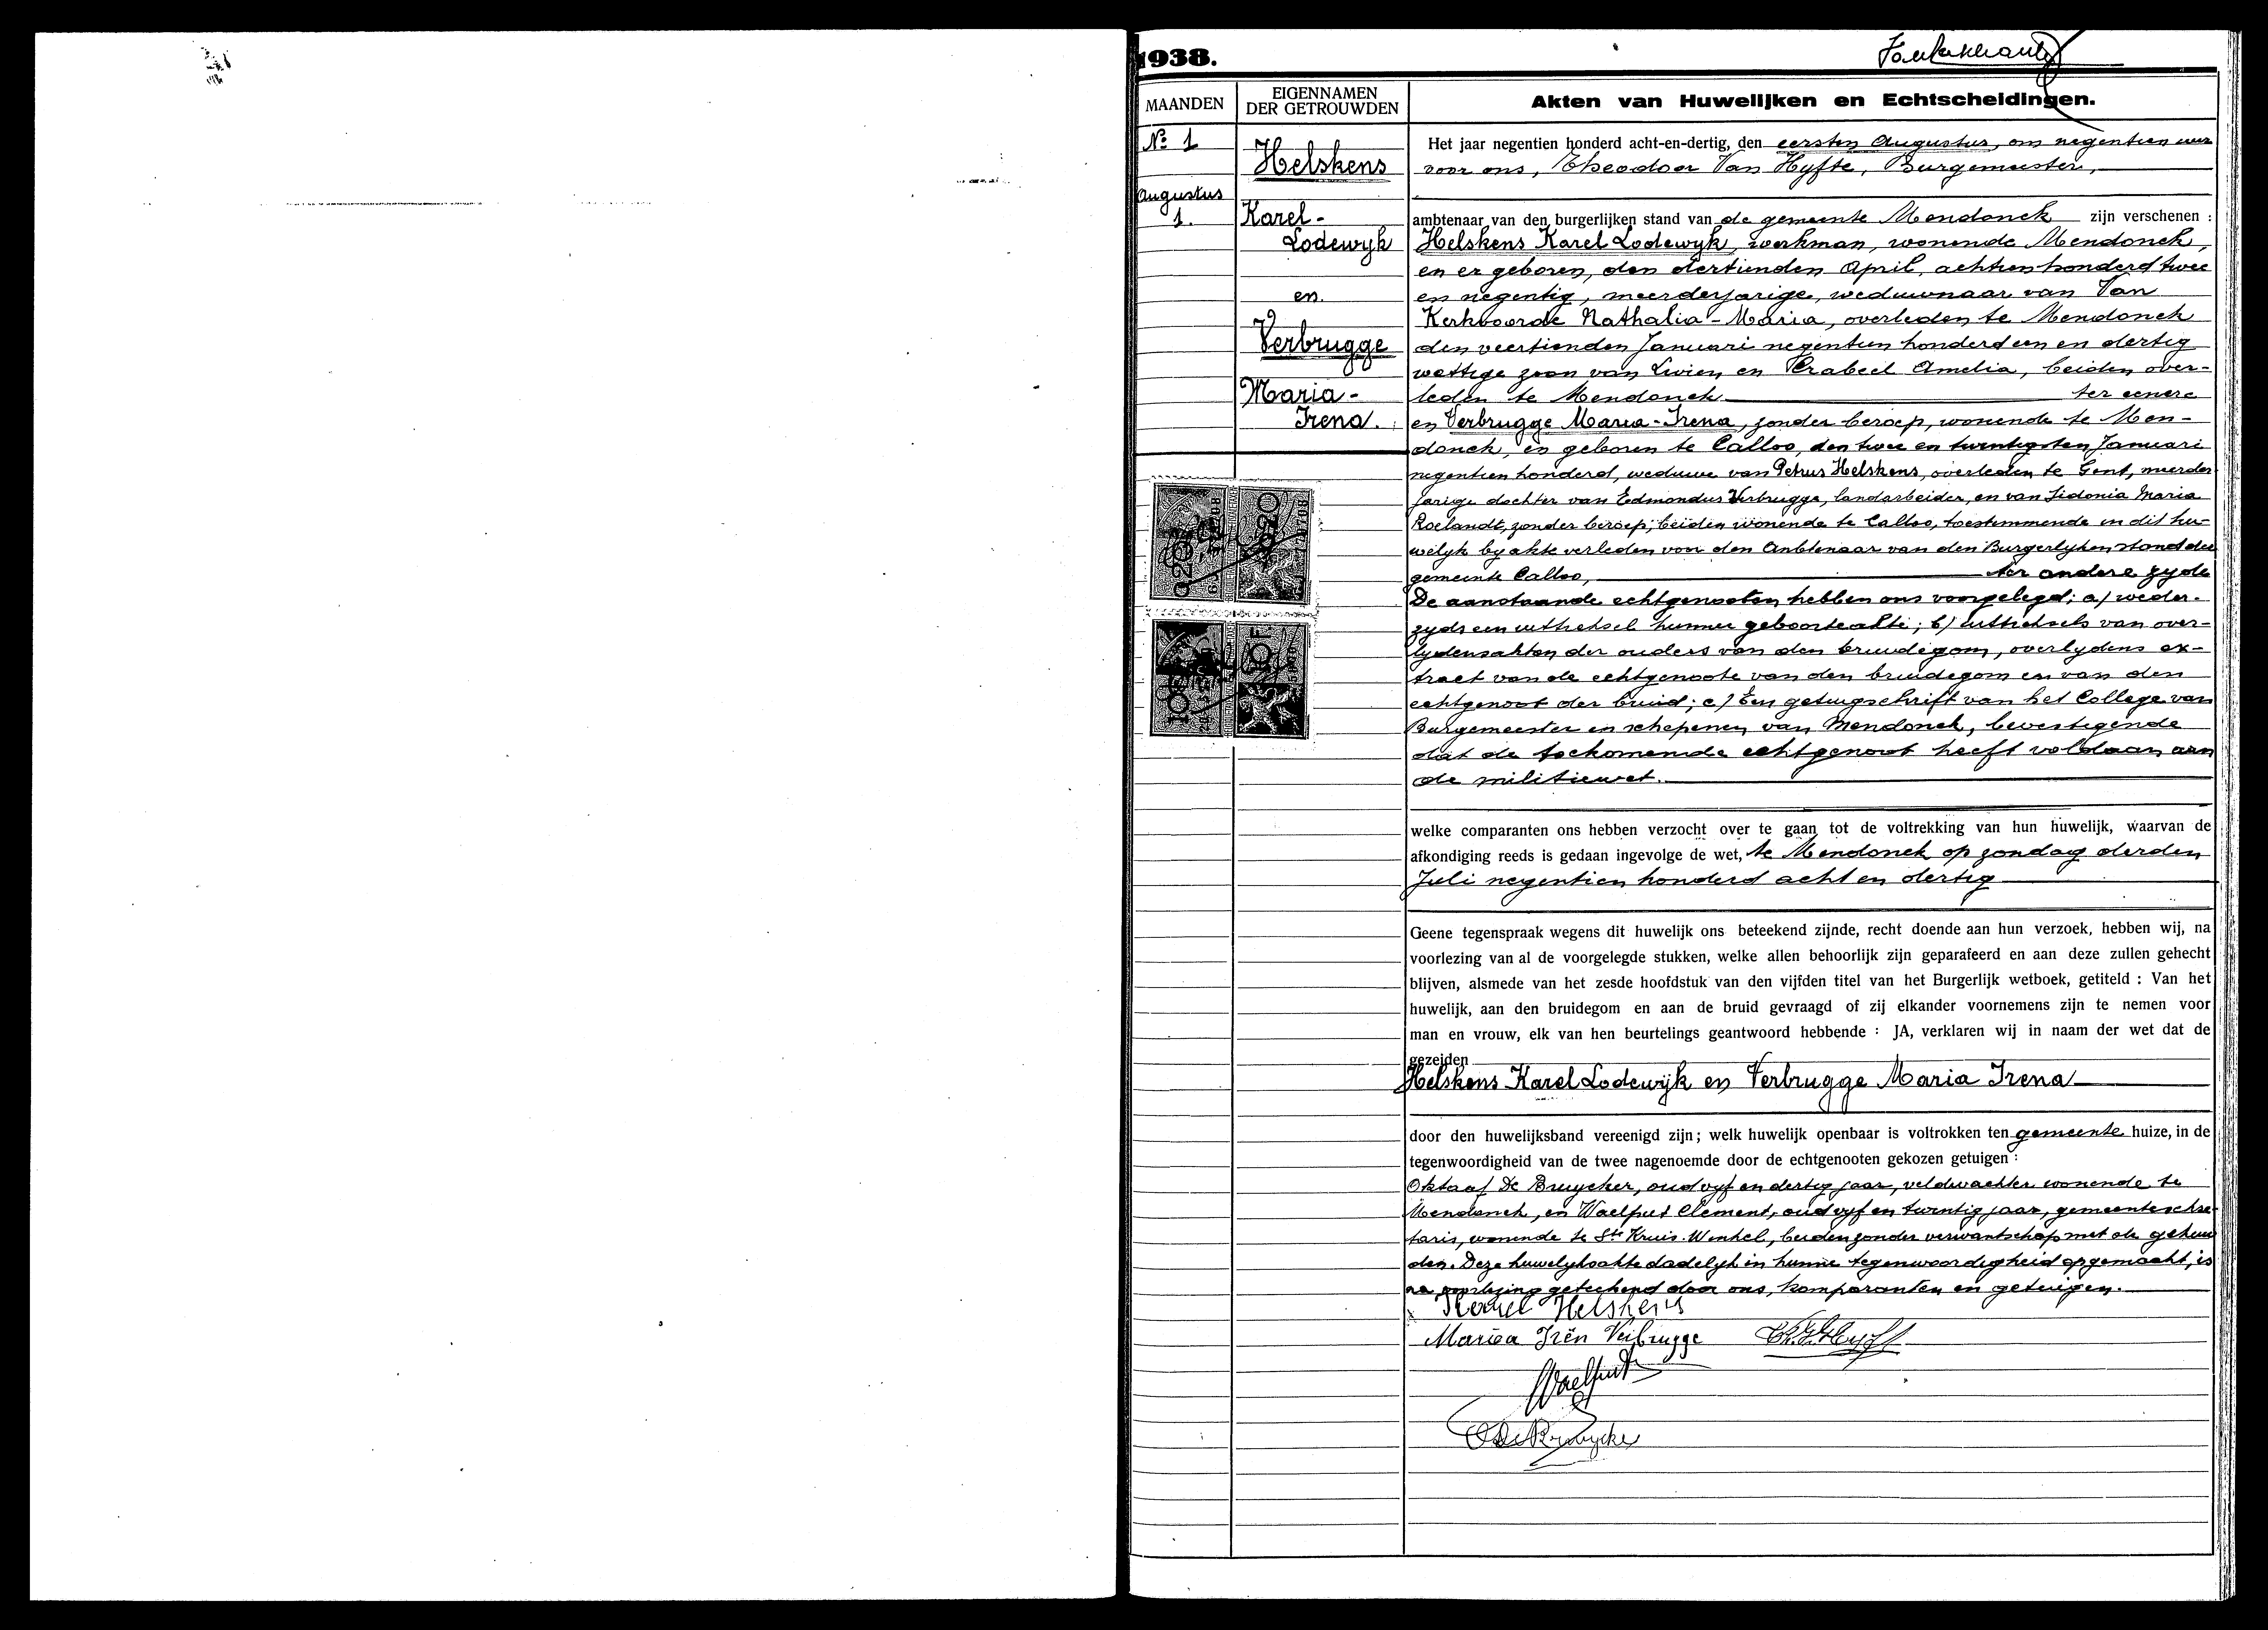 1938.
MAANDEN
EIGENNAMEN
DER GETROUWDEN
Akten van Huwelijken en Echtscheidingen.
№ 1
Augustus
1.
Helskens
Karel-
Lodewyk
en
Verbrugge
Maria-
Irena.
Het jaar negentien honderd acht-en-dertig, den eersten Augustus, om negentien uur
voor ons, Theodoor Van Hyfte, Burgemeester,
ambtenaar van den burgerlijken stand van de gemeente Mendonck zijn verschenen :
Helskens Karel Lodewyk, werkman, wonende Mendonck,
en er geboren, den dertienden April, achttien honderd twee
en negentig, meerderjarige, weduwnaar van Van
Kerkvoorde Nathalia-Maria, overleden te Mendonck
den veertienden Januari negentien honderd een en dertig
wettige zoon van Livien en Amelia, beiden over-
leden te Mendonck ter eenere
en Verbrugge Maria-Irena, zonder beroep, wonende te Men-
donck, en geboren te Calloo, den twee en twintigsten Januari
negentien honderd, weduwe van Petrus Helskens, overleden te Gent, meerder
jarige dochter van Edmondus Verbrugge, landarbeider, en van Sidonia Maria
Roelandt, zonder beroep; beiden wonende te Calloo, toestemmende in dit hu-
welyk by akte verleden voor den Ambtenaar van den Burgerlyken stand der
gemeente Calloo, ter andere zyde
De aanstaande echtgenooten hebben ons voorgelegd: a) weder-
zyds een uittreksel hunner geboorteakte; b) uittreksels van over-
lydensakten der ouders van den bruidegom, overlydens ex-
tract van de echtgenoote van den bruidegom en van den
echtgenoot der bruid; c) Een getuigschrift van het College van
Burgemeester en schepenen van Mendonck, bevestigende
dat de toekomende echtgenoot heeft voldaan aan
de militiewet.
welke comparanten ons hebben verzocht over te gaan tot de voltrekking van hun huwelijk, waarvan de
afkondiging reeds is gedaan ingevolge de wet, te Mendonck op zondag derden
Juli negentien honderd acht en dertig
Geene tegenspraak wegens dit huwelijk ons beteekend zijnde, recht doende aan hun verzoek, hebben wij, na
voorlezing van al de voorgelegde stukken, welke allen behoorlijk zijn geparafeerd en aan deze zullen gehecht
blijven, alsmede van het zesde hoofdstuk van den vijfden titel van het Burgerlijk wetboek, getiteld : Van het
huwelijk, aan den bruidegom en aan de bruid gevraagd of zij elkander voornemens zijn te nemen voor
man en vrouw, elk van hen beurtelings geantwoord hebbende : JA, verklaren wij in naam der wet dat de
gezeiden
Helskens Karel Lodewijk en Verbrugge Maria Irena
door den huwelijksband vereenigd zijn; welk huwelijk openbaar is voltrokken ten gemeente huize, in de
tegenwoordigheid van de twee nagenoemde door de echtgenooten gekozen getuigen :
Oktaaf De Bruycker, oud vyf en dertig jaar, veldwachter wonende te
Mendonck, en Waelput Clement, oud vyf en twintig jaar, gemeentesekre-
taris, wonende te Ste Kruis-Winkel, beiden zonder verwantschap met de gehuw
den. Deze huwelyksakte dadelyk in hunne tegenwoordigheid opgemaakt, is
na voorlezing geteekend door ons, komparanten en getuigen.
Karel Helskens
Mariea Irën Verbrugge
Waelput
De Bruycker